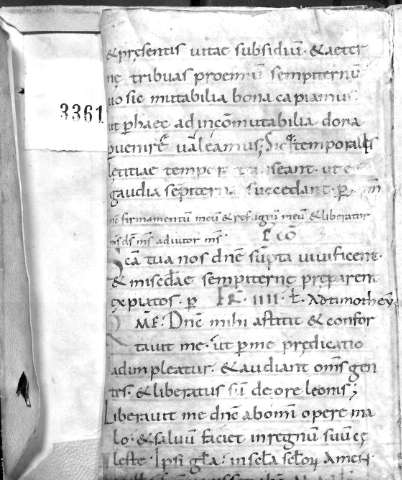 & pręsentis vitae subsidiū · & aeter
ne tribuas proemiū sempiternū
sic mutabilia bona capiamus
ut p haec ad incōmutabilia dona
3361
puenire valeamus; Sic temporalis
letitiae tempora transeant · ut
gaudia sępiterna succedant · p
firmamentū meū & refugiū meū & liberator
ds ms adiutor ms
Sc̄a tua nos dn̄e sūpta vivificent ·
& misedae sempiterne preparent
expiatos · p IIII · Ad timotheū
Dn̄s mihi astitit & confor
tavit me · ut p me prędicatio
adimpleatur · & audiant om̄s gen
tes · & liberatus sū de ore leonis;
Liberavit me dn̄s ab om̄i opere ma
lo · & salvū faciet in regnum suū cę
leste · Ipsi gła · in secła secłorų Amen